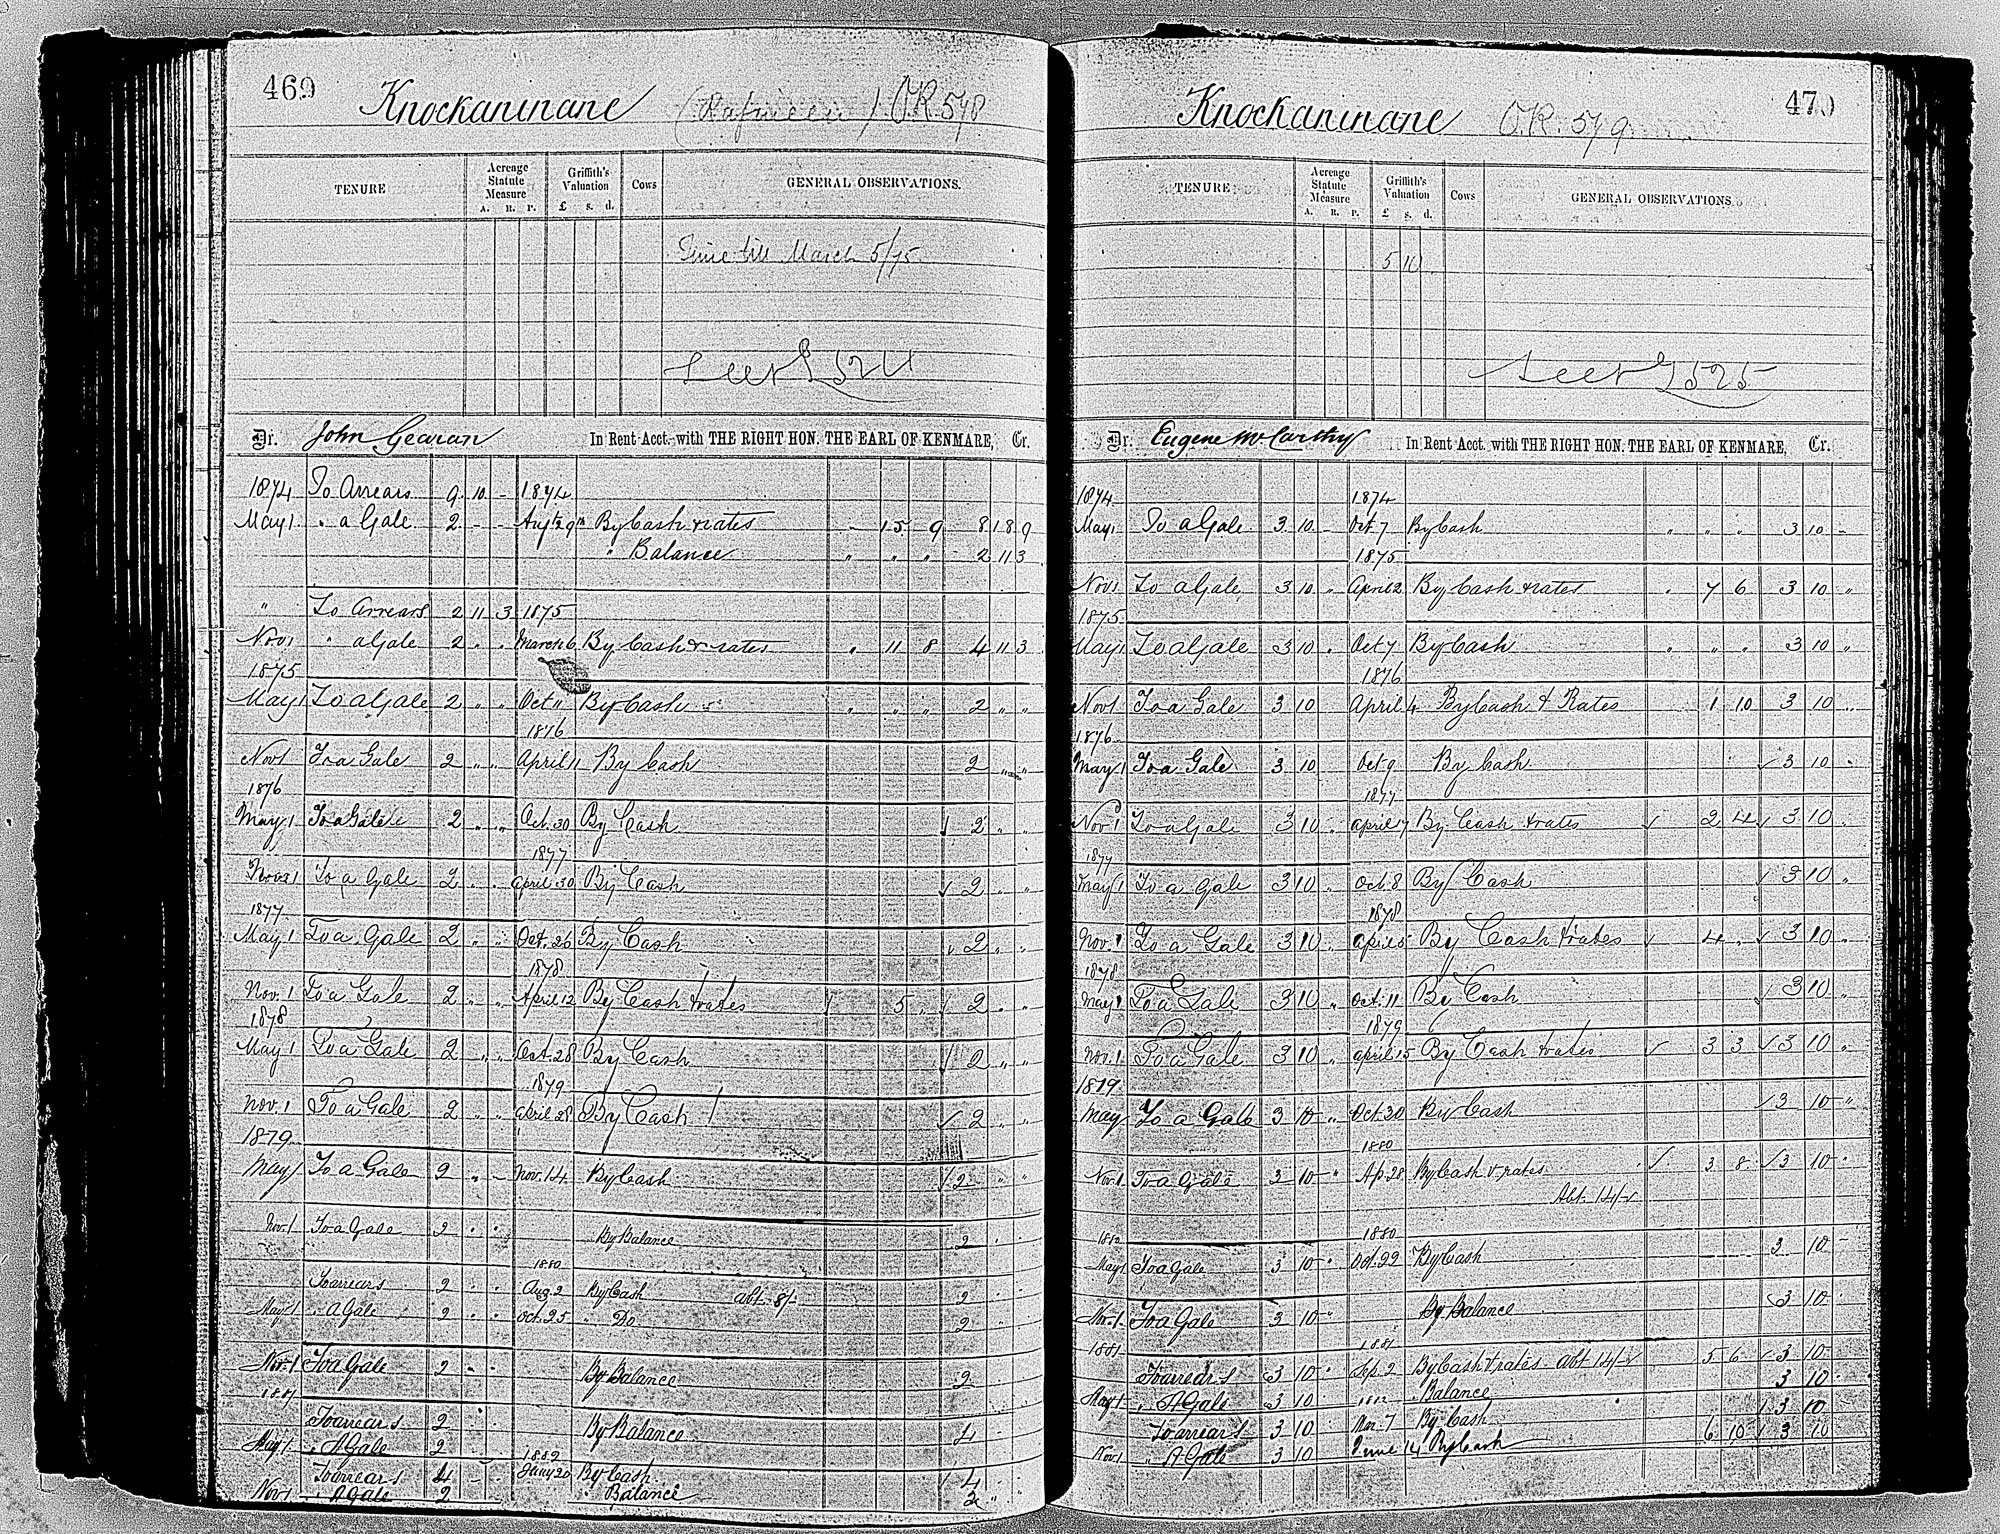 469
Knockaninane ( ) O.R. 578
TENURE
Acreage Statute Measure
A. R. P.
Griffith's Valuation
£ s. d.
Cows
GENERAL OBSERVATIONS.
Time till March 5/75
Dr. John Gearan In Rent Acct. with THE RIGHT HON. THE EARL OF KENMARE, Cr.
1874 To Arrears 9 10 - 1874
May 1 " a Gale 2 - - By Cash & rates - 15 9 8 18 9
" Balance " " " - 2 11 3
" To Arrears 2 11 3 1875
Nov 1 " a Gale 2 " " March 6 By Cash & rates " 11 8 4 11 3
1875
May 1 To a Gale 2 " " Oct 11 By Cash " " " 2 " "
1876
Nov 1 To a Gale 2 " " April 11 By Cash 2 " "
1876
May 1 To a Gale 2 " " Oct. 30 By Cash ✓ 2 " "
1877
Nov 1 To a Gale 2 " " April 30 By Cash ✓ 2 " "
1877
May 1 To a Gale 2 " " Oct. 26 By Cash ✓ 2 " "
1878
Nov. 1 To a Gale 2 " " April 12 By Cash & rates 5 " ✓ 2 " "
1878
May 1 To a Gale 2 " " Oct. 28 By Cash ✓ 2 " "
1879
Nov. 1 To a Gale 2 " " April 28 By Cash ✓ 2 " "
1879
May 1 To a Gale 2 " - Nov. 14 By Cash ✓ 2 " "
Nov. 1 To a Gale 2 " " By Balance 2 "
1880
To arrears 2 " " Aug 2 By Cash abt. 8/- 2 "
May 1 " A Gale 2 " " Oct. 25 " Do 2 "
Nov. 1 To a Gale 2 " " By Balance 2
1881
To arrears 2 By Balance 4
May 1 " A Gale 2
1882
To arrears 4 Jany 20 By Cash ✓ 4
Nov 1 " A Gale 2 " Balance 2 "
470
Knockaninane O.R. 579
TENURE
Acreage Statute Measure
A. R. P.
Griffith's Valuation
£ s. d.
Cows
GENERAL OBSERVATIONS.
5 10
Dr. Eugene McCarthy In Rent Acct. with THE RIGHT HON. THE EARL OF KENMARE, Cr.
1874 1874
May 1 To a Gale 3 10 - Oct 7 By Cash " " " 3 10 -
1875
Nov 1 To a Gale 3 10 " April 2 By Cash & rates " 7 6 3 10 "
1875
May 1 To a Gale 3 10 " Oct 7 By Cash " " " 3 10 "
1876
Nov 1 To a Gale 3 10 April 4 By Cash & Rates 1 10 3 10 "
1876
May 1 To a Gale 3 10 Oct 9 By Cash ✓ 3 10 "
1877
Nov 1 To a Gale 3 10 " April 7 By Cash & rates ✓ 2 4 ✓ 3 10 "
1877
May 1 To a Gale 3 10 " Oct. 8 By Cash ✓ 3 10 "
1878
Nov. 1 To a Gale 3 10 " April 5 By Cash & rates ✓ 4 " ✓ 3 10 "
1878
May 1 To a Gale 3 10 " Oct. 11 By Cash ✓ 3 10 "
1879
Nov. 1 To a Gale 3 10 " April 15 By Cash & rates ✓ 3 3 ✓ 3 10 "
1879
May To a Gale 3 10 " Oct. 30 By Cash ✓ 3 10 "
1880
Nov. 1 To a Gale 3 10 " Ap. 28 By Cash & rates ✓ 3 8 ✓ 3 10 "
Abt. 14/-
1880 1880
May 1 To a Gale 3 10 " Oct. 22 By Cash 3 10 -
Nov. 1 To a Gale 3 10 " By Balance 3 10
1881 1881
To arrears 3 10 " Sep. 2 By Cash & rates abt 14/- 5 6 ✓ 3 10
May 1 " A Gale 3 10 1882 Balance 3 10
To arrears 3 10 Mar. 7 By Cash ✓ 3 10
Nov. 1 " A Gale 3 10 June 14 By Cash 6 10 ✓ 3 10